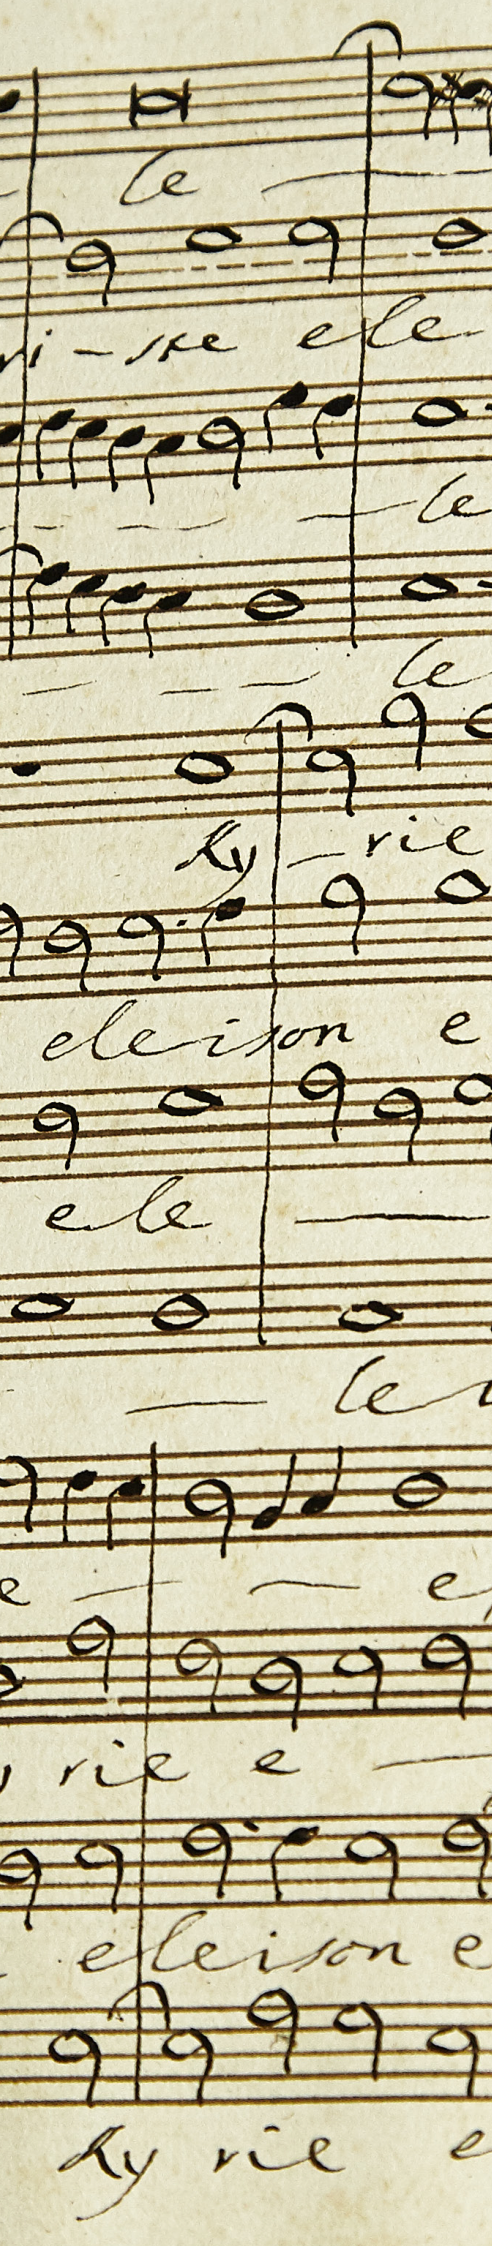 le
ri - ste ele
le
le
Ky - rie
eleison e
ele
le
e e
rie e
eleison e
Ky rie e